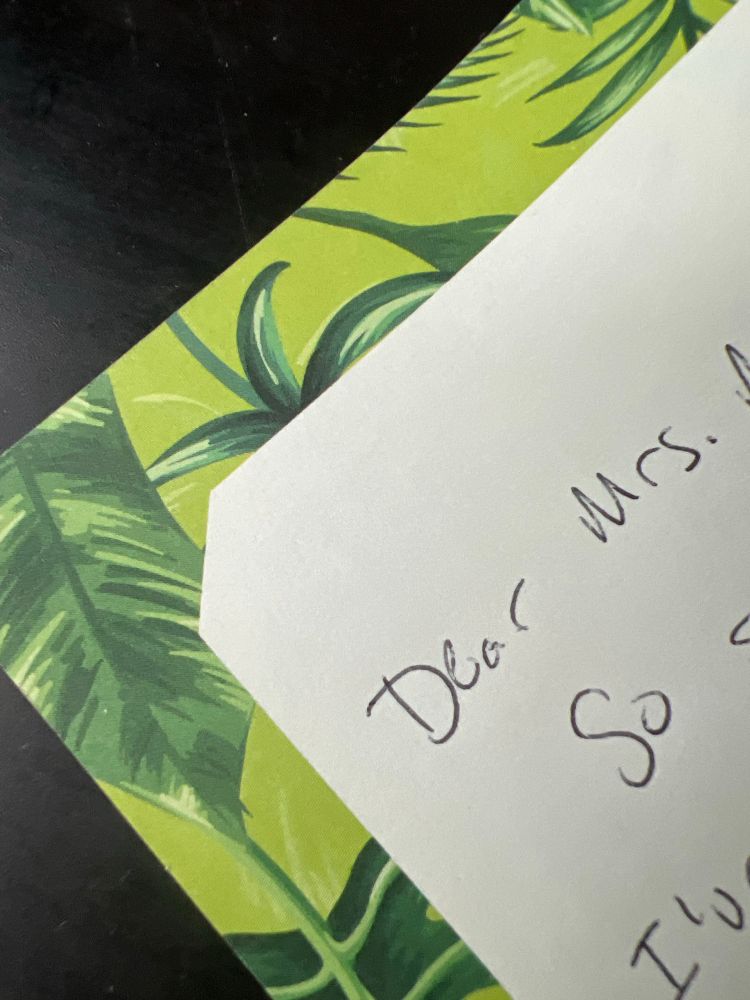 Dear Mrs.
So
I've